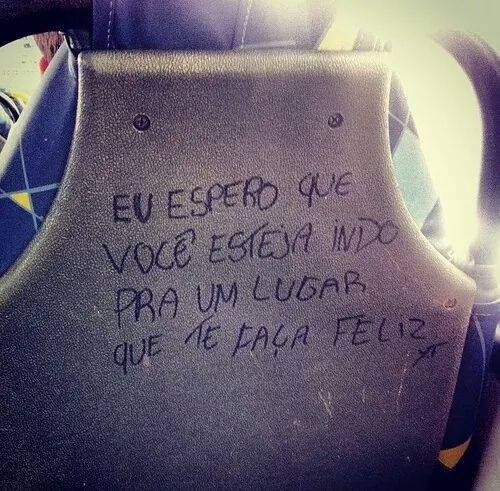 EU ESPERO QUE
VOCÊ ESTEJA INDO
PRA UM LUGAR
QUE TE FAÇA FELIZ